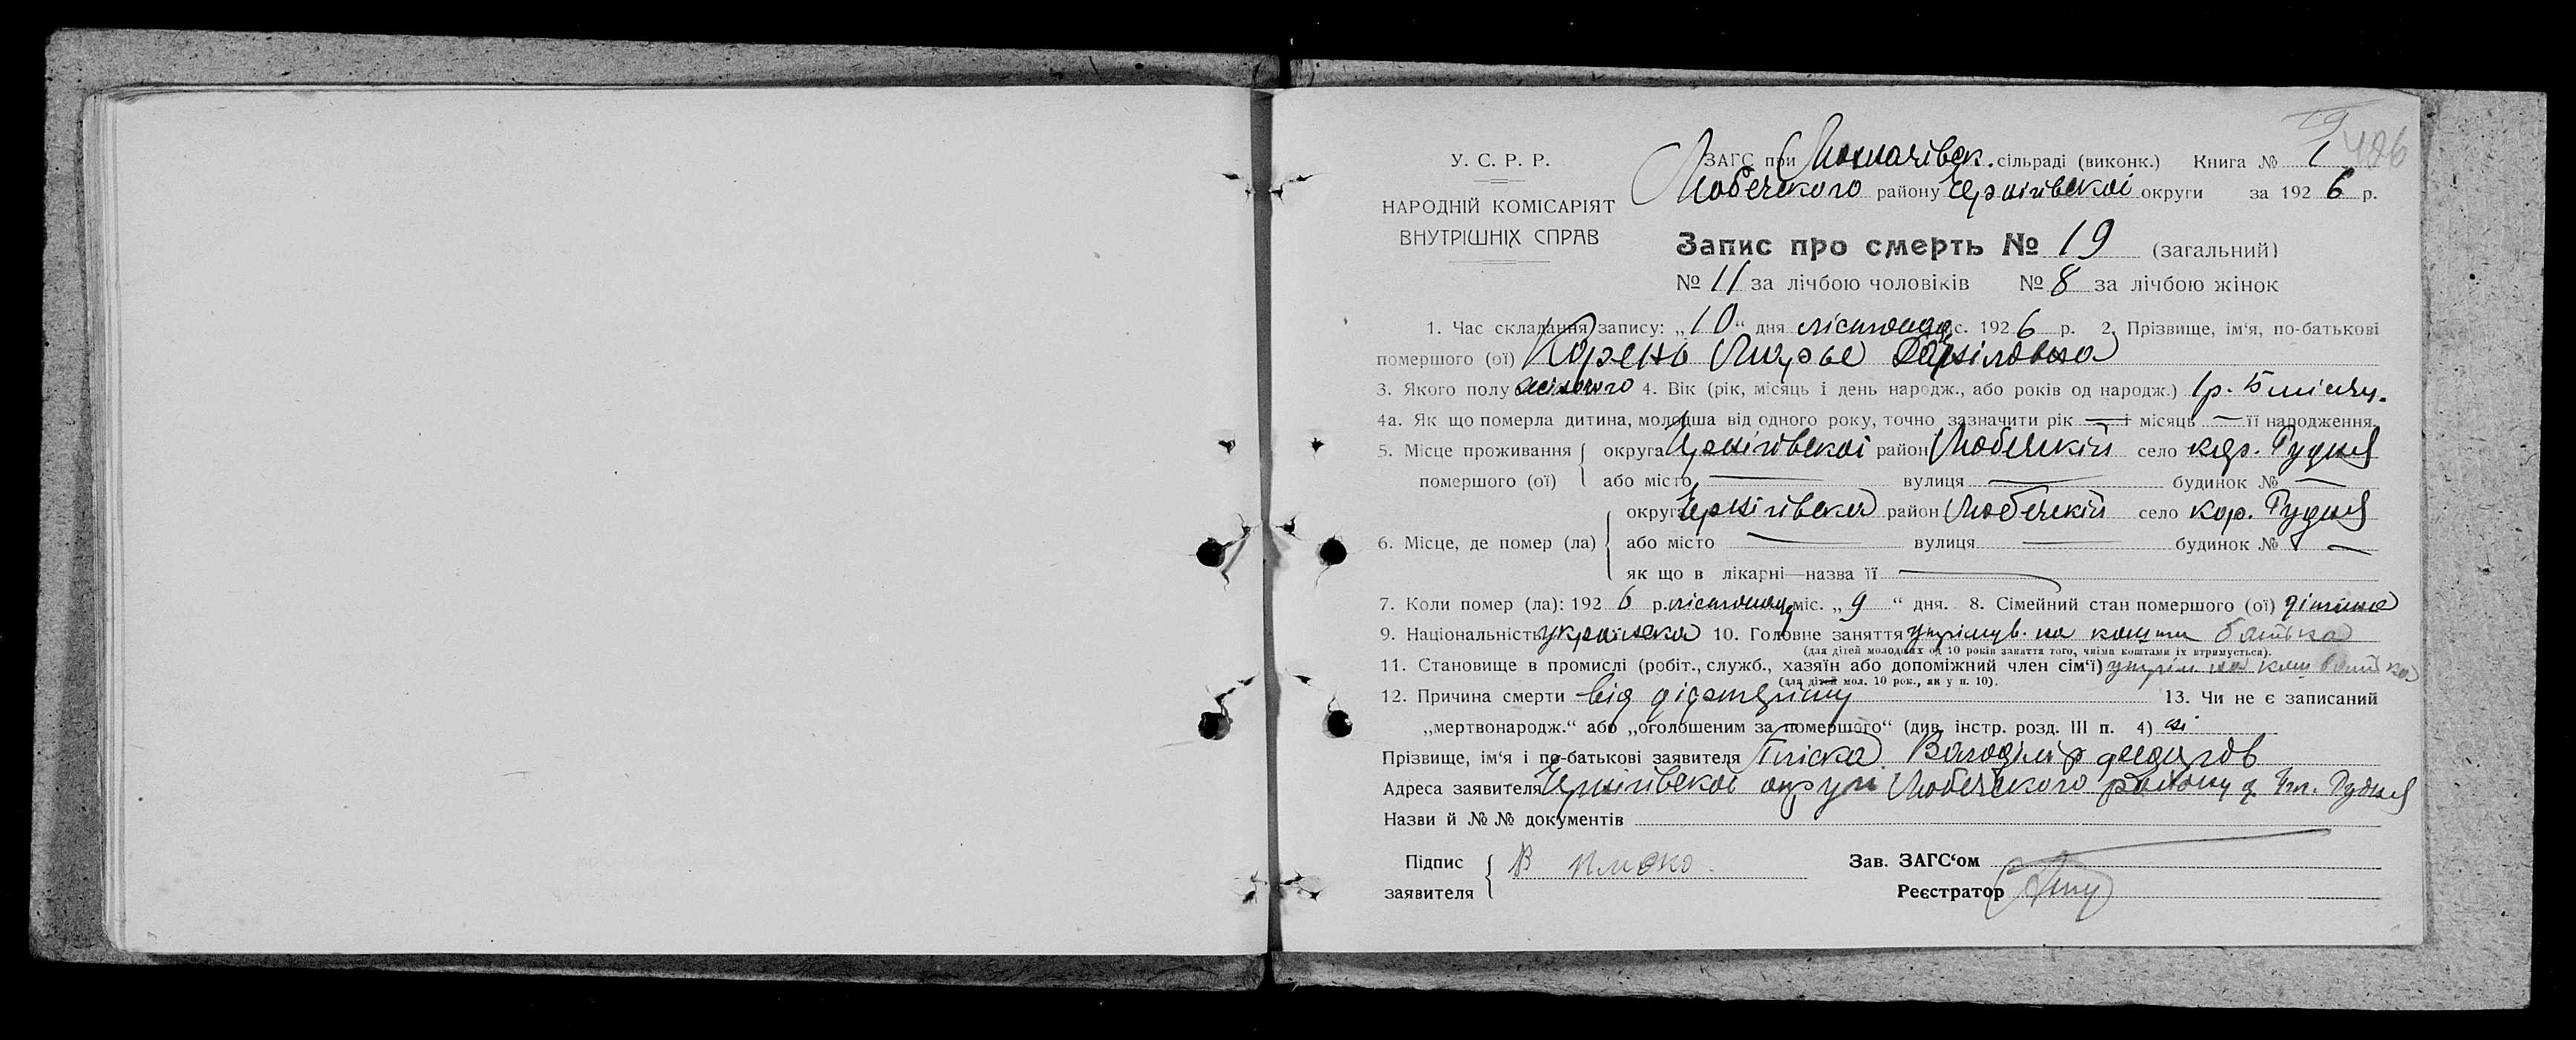 19
486
У. С. Р. Р.
НАРОДНІЙ КОМІСАРІЯТ
ВНУТРІШНІХ СПРАВ
ЗАГС при сільраді (виконк.) Книга № 1
Любечского району Чернігівскоі округи за 1926 р.
Запис про смерть № 19 (загальний)
№ 11 за лічбою чоловіків № 8 за лічбою жінок
1. Час складання запису: „10“ дня лістопад міс. 1926 р. 2. Прізвище, ім‘я, по-батькові
помершого (ої) Корень
3. Якого полу жіночого 4. Вік (рік, місяць і день народж., або років од народж.) 1р. 5 місяц.
4а. Як що померла дитина, молодша від одного року, точно зазначити рік — і місяць — її народження
5. Місце проживання помершого (ої) округа Чернігівскоі район Любечкій село кор. Рудня
або місто — вулиця — будинок № —
6. Місце, де помер (ла) округа Чернігівска район Любечкій село кор. Рудня
або місто — вулиця — будинок № —
як що в лікарні—назва її —
7. Коли помер (ла): 1926 р. лістопад міс. „9“ дня. 8. Сімейний стан помершого (ої) дітина
9. Національність українска 10. Головне заняття утрімув. на кошти батька
(для дітей молодших од 10 років заняття того, чиїми коштами їх втримується).
11. Становище в промислі (робіт., служб., хазяїн або допоміжний член сім‘ї) утрім на кош батька
(для дітей мол. 10 рок., як у п. 10).
12. Причина смерти від 13. Чи не є записаний
„мертвонародж.“ або „оголошеним за помершого“ (див. інстр. розд. III п. 4) ні
Прізвище, ім‘я і по-батькові заявителя Володімір
Адреса заявителя Чернігівскоі округи Любечского району Рудня
Назви й №№ документів
Підпис заявителя В
Зав. ЗАГС‘ом
Реєстратор